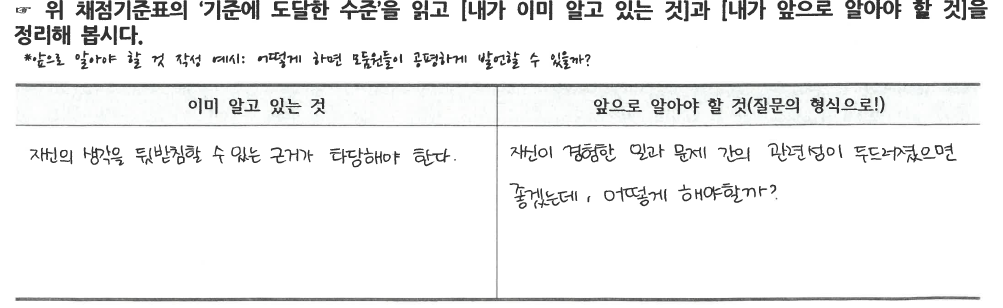 ☞ 위 채점기준표의 ‘기준에 도달한 수준’을 읽고 [내가 이미 알고 있는 것]과 [내가 앞으로 알아야 할 것]을
정리해 봅시다.
*앞으로 알아야 할 것 작성 예시: 어떻게 하면 모둠원들이 공평하게 발언할 수 있을까?
이미 알고 있는 것
앞으로 알아야 할 것(질문의 형식으로!)
자신의 생각을 뒷받침할 수 있는 근거가 타당해야 한다.
자신이 경험한 일과 문제 간의 관련성이 두드러졌으면
좋겠는데, 어떻게 해야할까?